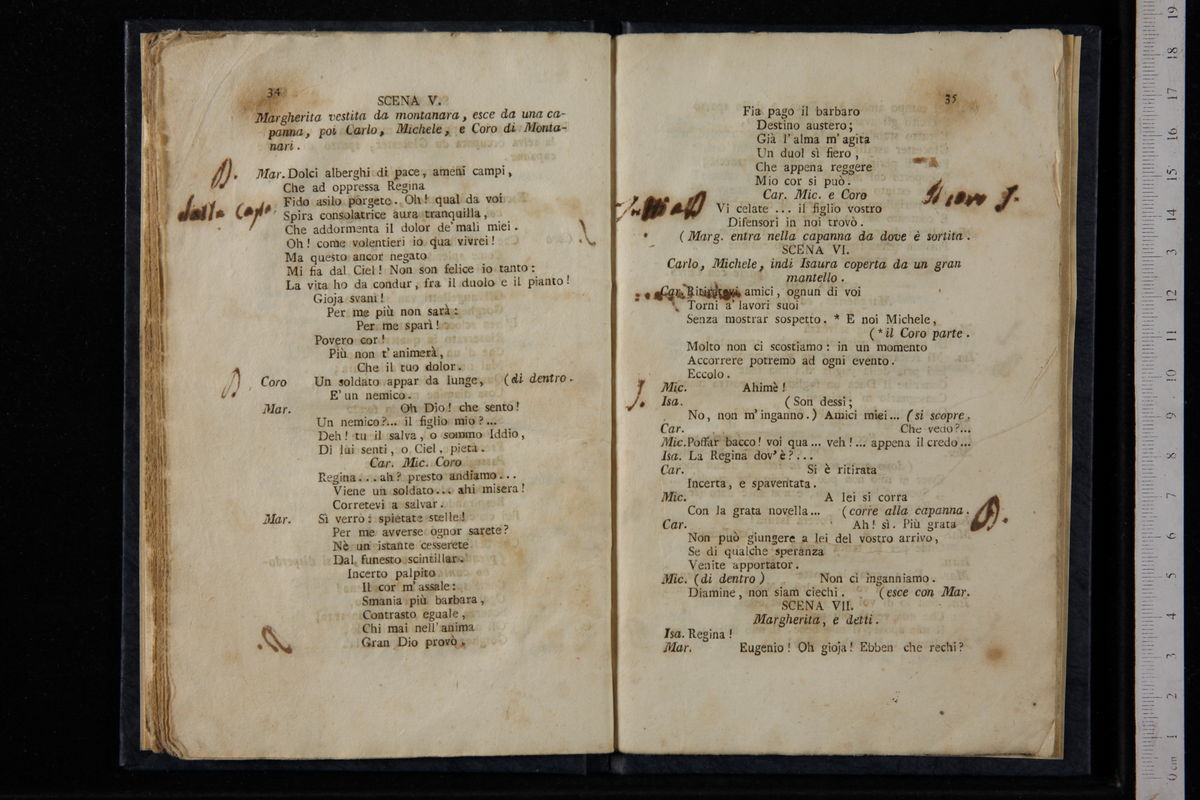 34
SCENA V.
Margherita vestita da montanara, esce da una ca-
panna, poi Carlo, Michele, e Coro di Monta-
nari.
Mar. Dolci alberghi di pace, ameni campi,
Che ad oppressa Regina
Fido asilo porgete. Oh! qual da voi
dalla
Spira consolatrice aura tranquilla,
Che addormenta il dolor de' mali miei.
Oh! come volentieri io qua vivrei!
Ma questo ancor negato
Mi fia dal Ciel! Non son felice io tanto:
La vita ho da condur, fra il duolo e il pianto!
Gioja svanì!
Per me più non sarà:
Per me sparì!
Povero cor!
Più non t'animerà,
Che il tuo dolor.
Coro Un soldato appar da lunge, (di dentro.
E' un nemico.
Mar. Oh Dio! che sento!
Un nemico?... il figlio mio?...
Deh! tu il salva, o sommo Iddio,
Di lui senti, o Ciel, pietà.
Car. Mic. Coro
Regina... ah? presto andiamo...
Viene un soldato... ahi misera!
Corretevi a salvar.
Mar. Sì verrò: spietate stelle!
Per me avverse ognor sarete?
Nè un istante cesserete
Dal funesto scintillar.
Incerto palpito
Il cor m'assale:
Smania più barbara,
Contrasto eguale,
Chi mai nell'anima
Gran Dio provò.
35
Fia pago il barbaro
Destino austero;
Già l'alma m'agita
Un duol sì fiero,
Che appena reggere
Mio cor si può.
Car. Mic. e Coro
Vi celate ... il figlio vostro
Difensori in noi trovò.
(Marg. entra nella capanna da dove è sortita.
SCENA VI.
Carlo, Michele, indi Isaura coperta da un gran
mantello.
Car. Ritiratevi amici, ognun di voi
Torni a' lavori suoi
Senza mostrar sospetto. * E noi Michele,
(*il Coro parte.
Molto non ci scostiamo: in un momento
Accorrere potremo ad ogni evento.
Eccolo.
Mic. Ahimè!
Isa. (Son dessi;
No, non m'inganno.) Amici miei... (si scopre.
Car. Che vedo?...
Mic. Poffar bacco! voi qua... veh!... appena il credo...
Isa. La Regina dov'è?...
Car. Si è ritirata
Incerta, e spaventata.
Mic. A lei si corra
Con la grata novella... (corre alla capanna.
Car. Ah! sì. Più grata
Non può giungere a lei del vostro arrivo,
Se di qualche speranza
Venite apportator.
Mic. (di dentro) Non ci inganniamo.
Diamine, non siam ciechi. (esce con Mar.
SCENA VII.
Margherita, e detti.
Isa. Regina!
Mar. Eugenio! Oh gioja! Ebben che rechi?
0 cm 1 2 3 4 5 6 7 8 9 10 11 12 13 14 15 16 17 18 19